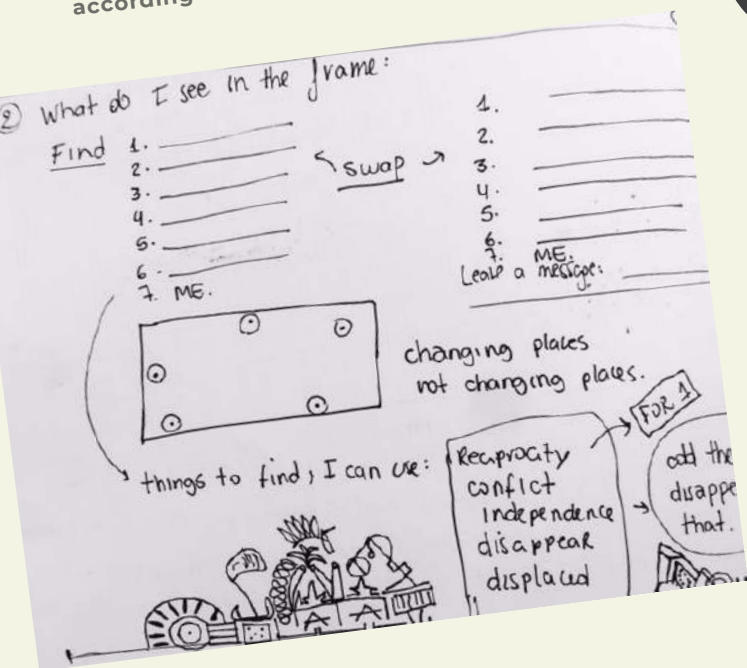 according
② What do I see in the frame:
Find 1.
2.
3.
4.
5.
6.
7. ME.
swap
1.
2.
3.
4.
5.
6.
7. ME.
Leave a message:
changing places
not changing places.
things to find, I can use:
Reciprocity
conflict
independence
disappear
displaced
FOR 1
add the
disappe
that.